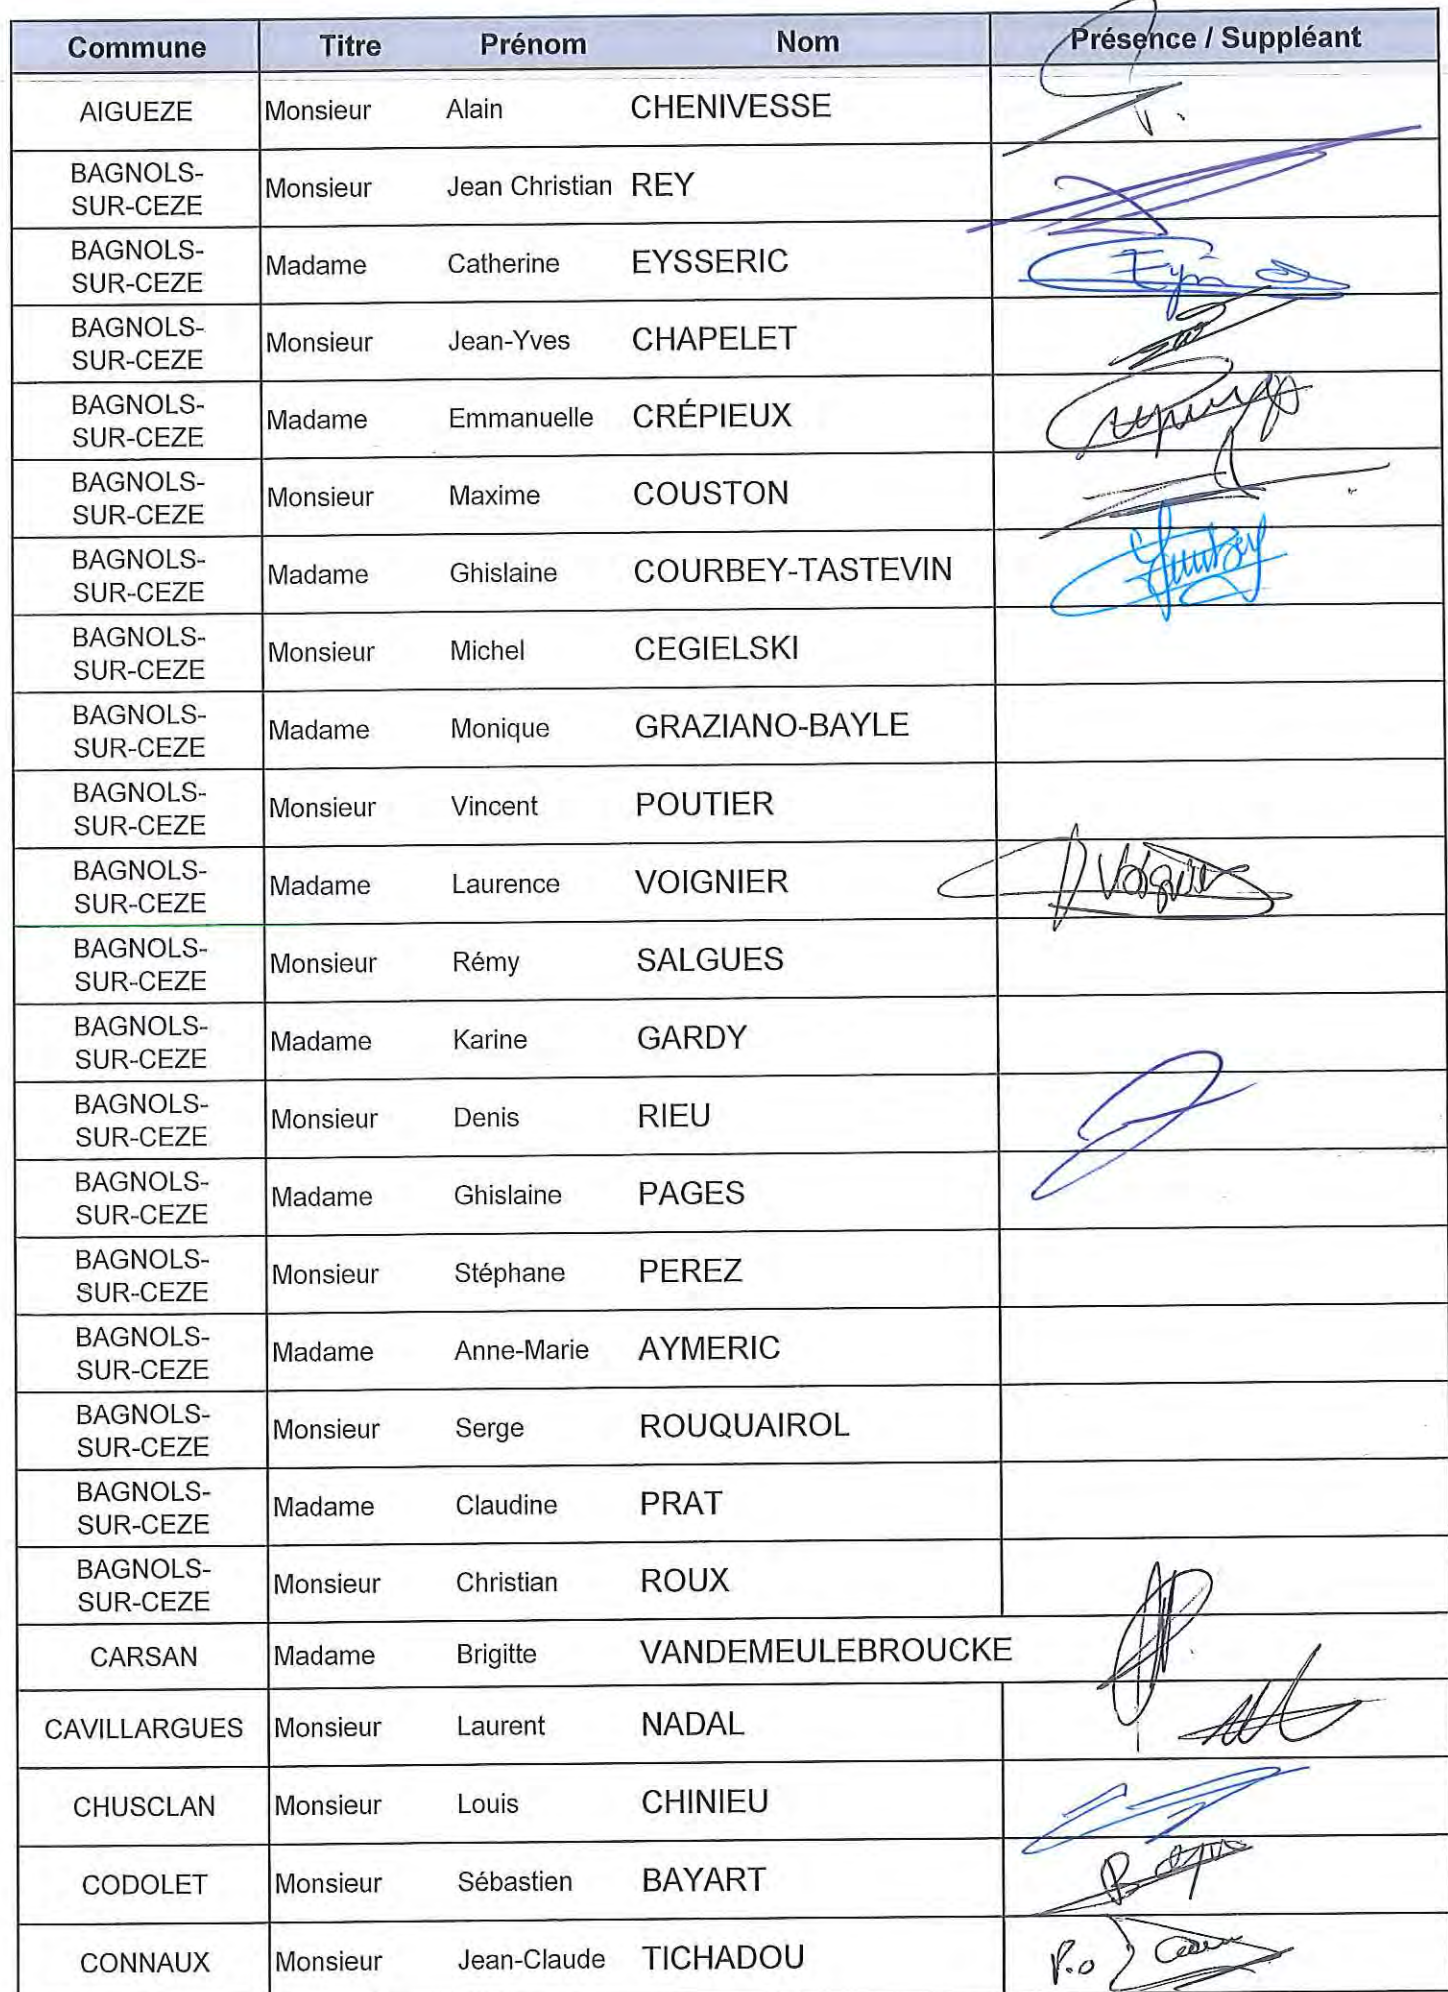 Commune Titre Prénom Nom Présence / Suppléant
AIGUEZE Monsieur Alain CHENIVESSE
BAGNOLS-
SUR-CEZE Monsieur Jean Christian REY
BAGNOLS-
SUR-CEZE Madame Catherine EYSSERIC
BAGNOLS-
SUR-CEZE Monsieur Jean-Yves CHAPELET
BAGNOLS-
SUR-CEZE Madame Emmanuelle CRÉPIEUX
BAGNOLS-
SUR-CEZE Monsieur Maxime COUSTON
BAGNOLS-
SUR-CEZE Madame Ghislaine COURBEY-TASTEVIN
BAGNOLS-
SUR-CEZE Monsieur Michel CEGIELSKI
BAGNOLS-
SUR-CEZE Madame Monique GRAZIANO-BAYLE
BAGNOLS-
SUR-CEZE Monsieur Vincent POUTIER
BAGNOLS-
SUR-CEZE Madame Laurence VOIGNIER
BAGNOLS-
SUR-CEZE Monsieur Rémy SALGUES
BAGNOLS-
SUR-CEZE Madame Karine GARDY
BAGNOLS-
SUR-CEZE Monsieur Denis RIEU
BAGNOLS-
SUR-CEZE Madame Ghislaine PAGES
BAGNOLS-
SUR-CEZE Monsieur Stéphane PEREZ
BAGNOLS-
SUR-CEZE Madame Anne-Marie AYMERIC
BAGNOLS-
SUR-CEZE Monsieur Serge ROUQUAIROL
BAGNOLS-
SUR-CEZE Madame Claudine PRAT
BAGNOLS-
SUR-CEZE Monsieur Christian ROUX
CARSAN Madame Brigitte VANDEMEULEBROUCKE
CAVILLARGUES Monsieur Laurent NADAL
CHUSCLAN Monsieur Louis CHINIEU
CODOLET Monsieur Sébastien BAYART
CONNAUX Monsieur Jean-Claude TICHADOU P.o